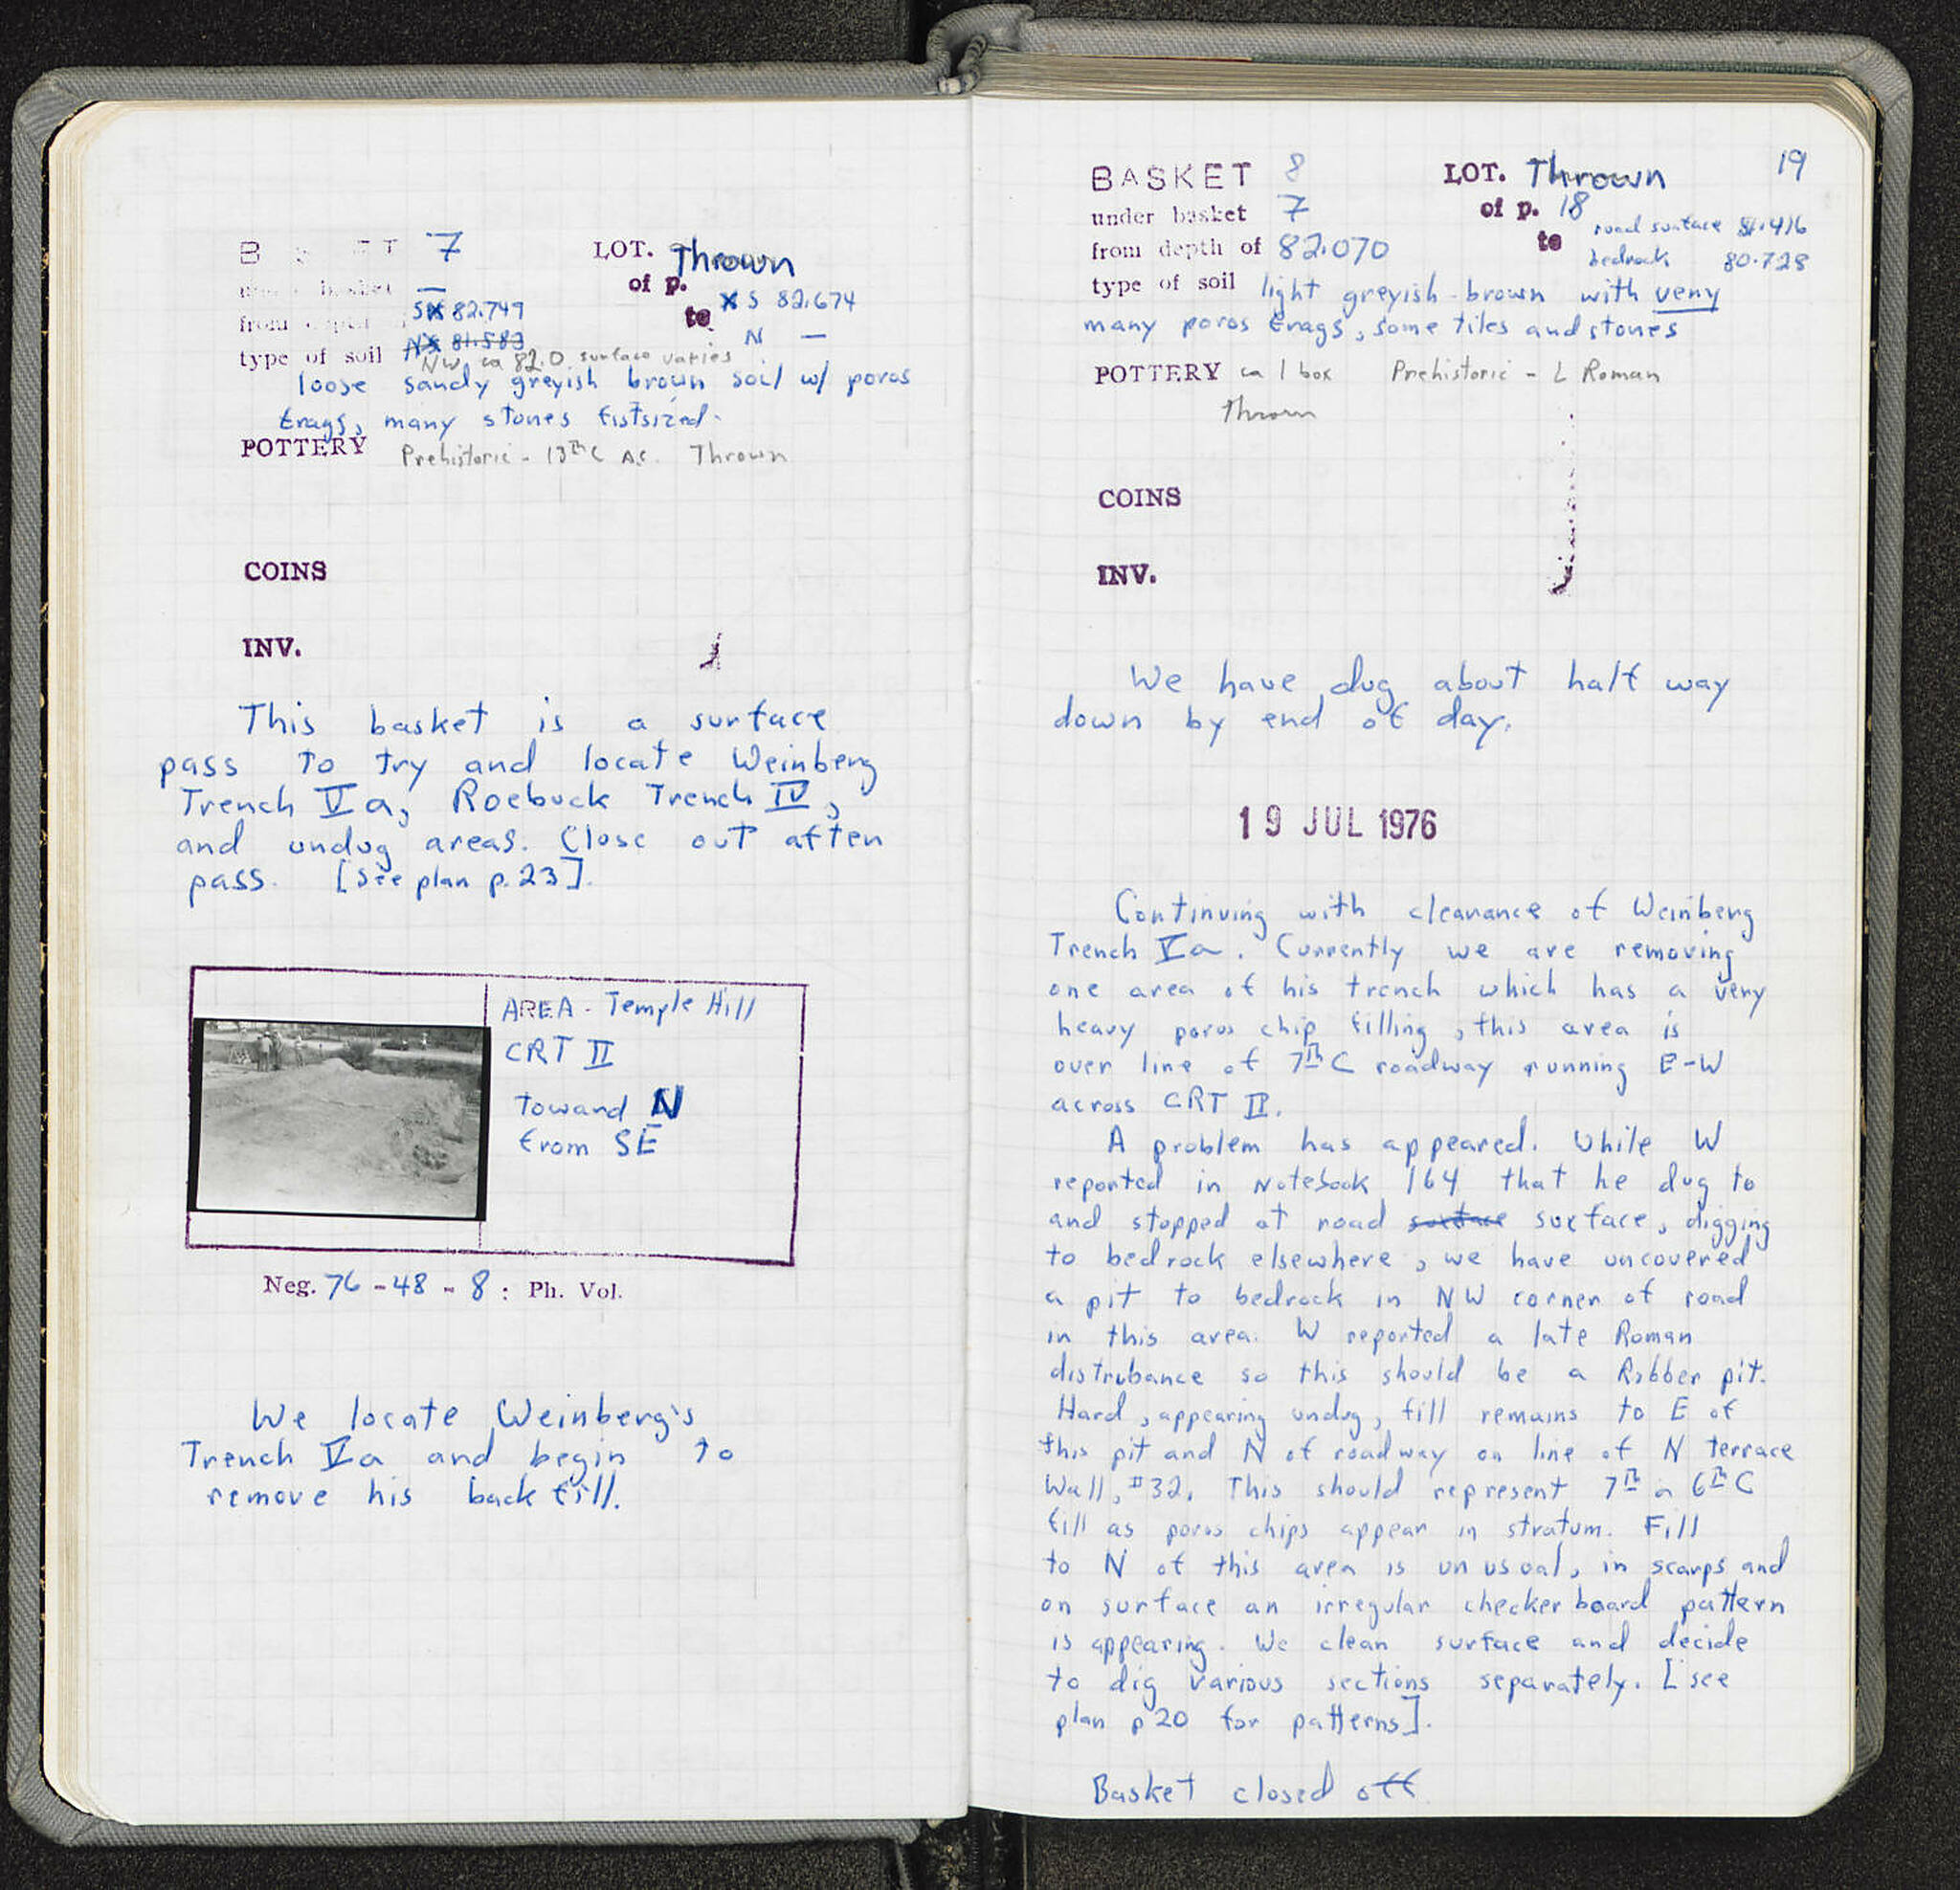 BASKET 7 LOT. Thrown
under basket — of p.
from depth S 82.749 to S 82.674
N 81.583 N —
type of soil NW ca 82.0 surface varies
loose sandy greyish brown soil w/ poros
frags, many stones fistsized.
POTTERY Prehistoric - 13th C A.C. Thrown
COINS
INV.
This basket is a surface
pass to try and locate Weinberg
Trench Va, Roebuck Trench IV,
and undug areas. Close out after
pass. [See plan p. 23].
AREA - Temple Hill
CRT II
toward N
from SE
Neg. 76 - 48 - 8 : Ph. Vol.
We locate Weinberg's
Trench Va and begin to
remove his backfill.
19
BASKET 8 LOT. Thrown
under basket 7 of p. 18
from depth of 82.070 to road surface 81.416
bedrock 80.728
type of soil light greyish-brown with very
many poros frags, some tiles and stones
POTTERY ca 1 box Prehistoric - L Roman
Thrown
COINS
INV.
We have dug about half way
down by end of day.
19 JUL 1976
Continuing with clearance of Weinberg
Trench Va. Currently we are removing
one area of his trench which has a very
heavy poros chip filling, this area is
over line of 7th C roadway running E-W
across CRT II.
A problem has appeared. While W
reported in Notebook 164 that he dug to
and stopped at road surface surface, digging
to bedrock elsewhere, we have uncovered
a pit to bedrock in NW corner of road
in this area. W reported a late Roman
distrubance so this should be a Robber pit.
Hard, appearing undug, fill remains to E of
this pit and N of roadway on line of N terrace
Wall, #32. This should represent 7th or 6th C
fill as poros chips appear in stratum. Fill
to N of this area is unusual, in scarps and
on surface an irregular checkerboard pattern
is appearing. We clean surface and decide
to dig various sections separately. [see
plan p 20 for patterns].
Basket closed off